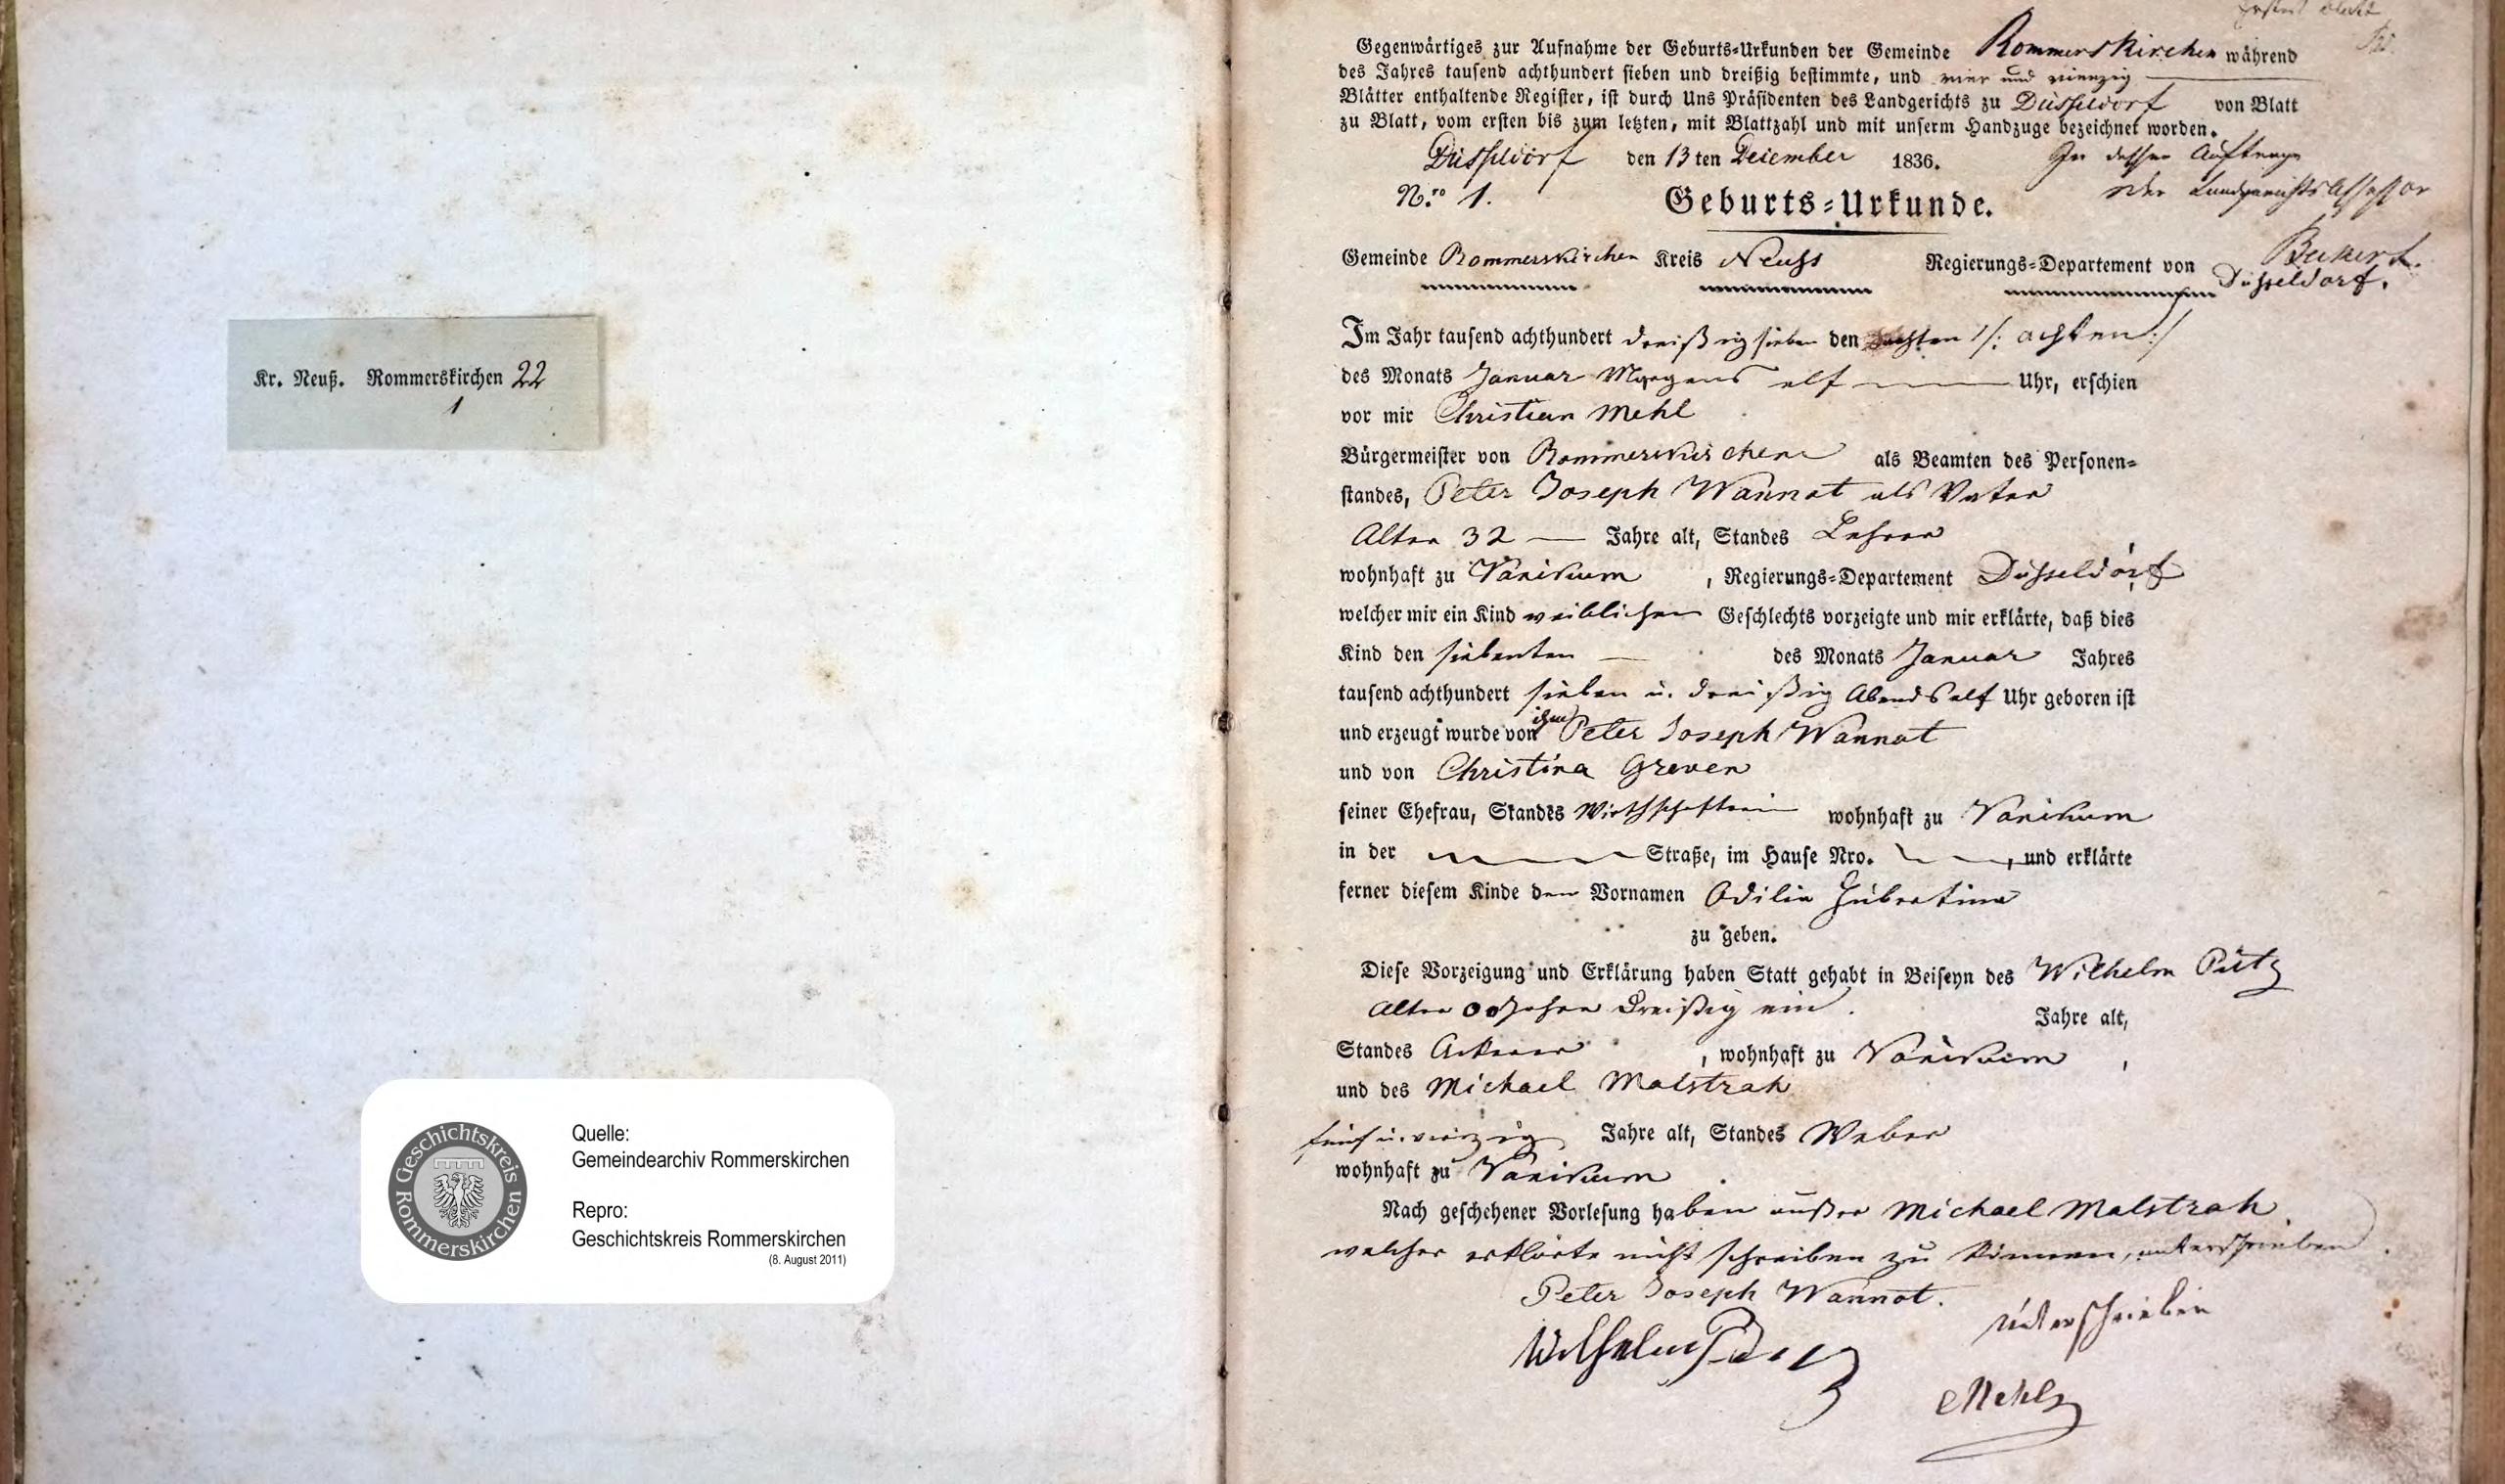 Kr. Neuß. Rommerskirchen 22
1
Geschichtskreis Rommerskirchen
Quelle:
Gemeindearchiv Rommerskirchen
Repro:
Geschichtskreis Rommerskirchen
(8. August 2011)
Erstes Blatt
Gegenwärtiges zur Aufnahme der Geburts-Urkunden der Gemeinde Rommerskirchen während
des Jahres tausend achthundert sieben und dreißig bestimmte, und vier und vierzig
Blätter enthaltende Register, ist durch Uns Präsidenten des Landgerichts zu Düsseldorf von Blatt
zu Blatt, vom ersten bis zum letzten, mit Blattzahl und mit unserm Handzuge bezeichnet worden.
Düsseldorf den 13ten Dezember 1836. In dessen Auftrage
N.ro 1. Geburts-Urkunde. der Landgerichts Assessor
Gemeinde Rommerskirchen Kreis Neuss Regierungs-Departement von Düsseldorf.
Im Jahr tausend achthundert dreißig sieben den /: achten :/
des Monats Januar Morgens elf Uhr, erschien
vor mir Christian Mehl
Bürgermeister von Rommerskirchen als Beamten des Personen-
standes, Peter Joseph Wannot als Vater
Alter 32 Jahre alt, Standes Lehrer
wohnhaft zu Vanikum, Regierungs-Departement Düsseldorf
welcher mir ein Kind weiblichen Geschlechts vorzeigte und mir erklärte, daß dies
Kind den siebenten des Monats Januar Jahres
tausend achthundert sieben u. dreißig Abends elf Uhr geboren ist
und erzeugt wurde von ihm Peter Joseph Wannot
und von Christina Greven
seiner Ehefrau, Standes wohnhaft zu Vanikum
in der Straße, im Hause Nro. , und erklärte
ferner diesem Kinde den Vornamen Odilia Hubertina
zu geben.
Diese Vorzeigung und Erklärung haben Statt gehabt in Beiseyn des Wilhelm Pütz
Alter Jahre Dreißig ein Jahre alt,
Standes Ackerer, wohnhaft zu Vanikum,
und des Michael Malstrah
fünf u. vierzig Jahre alt, Standes Weber
wohnhaft zu Vanikum
Nach geschehener Vorlesung haben außer Michael Malstrah
welcher erklärte nicht schreiben zu können, unterschrieben.
Peter Joseph Wannot.
unterschrieben
Wilhelm Pütz
CMehl